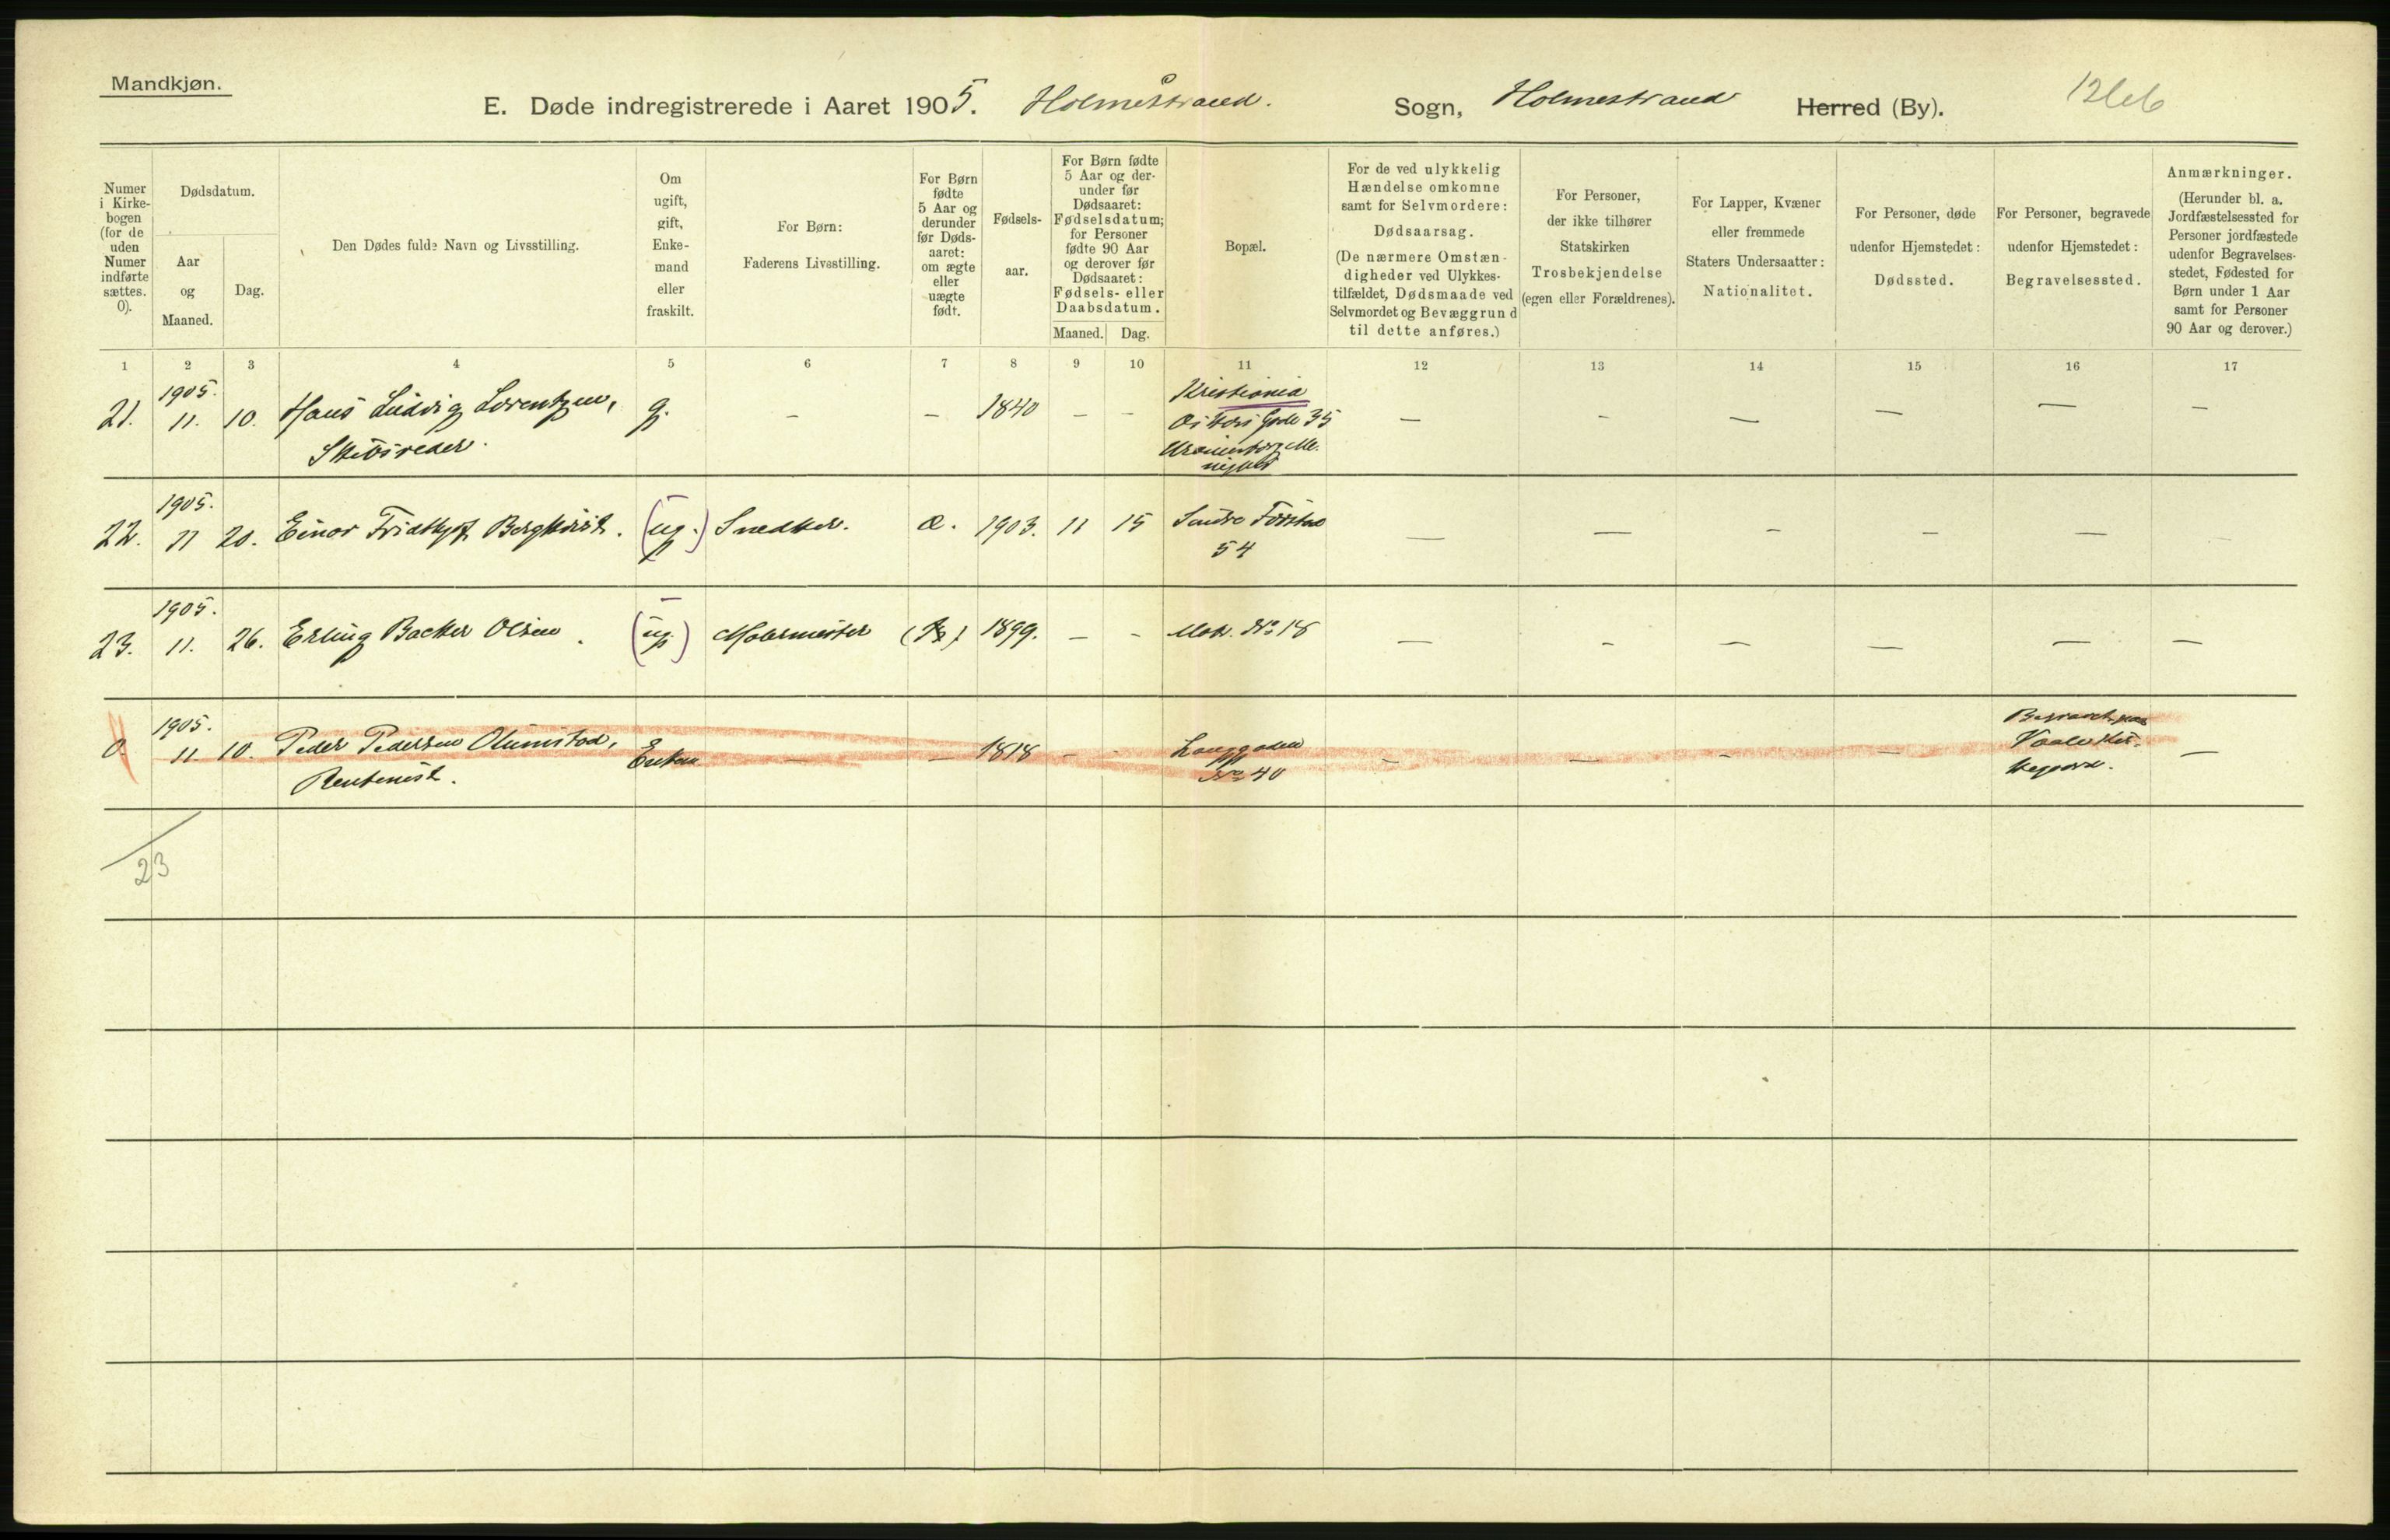 Mandkjøn.
E. Døde indregistrerede i Aaret 1905. Holmestrand. Sogn, Holmestrand Herred (By).
Numer i Kirkebogen (for de uden Numer indførte sættes. 0).
Dødsdatum.
Aar og Maaned.
Dag.
Den Dødes fulde Navn og Livsstilling.
Om ugift, gift, Enkemand eller fraskilt.
For Børn: Faderens Livsstilling.
For Børn fødte 5 Aar og derunder før Dødsaaret: om ægte eller uægte født.
Fødselsaar.
For Børn fødte 5 Aar og derunder før Dødsaaret: Fødselsdatum; for Personer fødte 90 Aar og derover før Dødsaaret: Fødsels- eller Daabsdatum.
Maaned. Dag.
Bopæl.
For de ved ulykkelig Hændelse omkomne samt for Selvmordere: Dødsaarsag. (De nærmere Omstændigheder ved Ulykkestilfældet, Dødsmaade ved Selvmordet og Bevæggrund til dette anføres.)
For Personer, der ikke tilhører Statskirken Trosbekjendelse (egen eller Forældrenes).
For Lapper, Kvæner eller fremmede Staters Undersaatter: Nationalitet.
For Personer, døde udenfor Hjemstedet: Dødssted.
For Personer, begravede udenfor Hjemstedet: Begravelsessted.
Anmærkninger. (Herunder bl. a. Jordfæstelsessted for Personer jordfæstede udenfor Begravelsesstedet, Fødested for Børn under 1 Aar samt for Personer 90 Aar og derover.)
1 2 3 4 5 6 7 8 9 10 11 12 13 14 15 16 17
1905. Kristiania
21. 11. 10. Hans Ludvig Lorentzen, g. — — 1840 — — Oskars Gade 35 — — — — — —
Skibsreder. Uranienborg Me-
nighed
1905.
22. 11 20. Einar Fridthjof Bergkvist. (ug.) Snedker. Æ. 1903. 11 15 Søndre — — — — —
54
1905.
23. 11. 26. Erling Backer Olsen. (ug.) 1899. — — No 18 — — — — — —
1905.
0. 11. 10. Peder Pedersen Olumstad, Enkem. — — 1818 — — Langgaden — — — — Vaale Kir- —
Rentenist. No 40 kegaard.
23